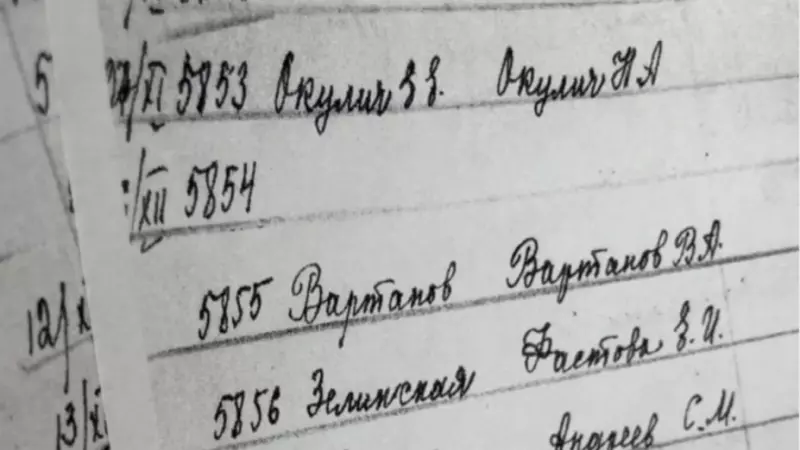 5 27/XI 5853 Окулич Е Е. Окулич Н А
/XII 5854
5855 Вартанов Вартанов В.А.
12/X 5856 Зелинская Фастова Е.И.
13/X Андреев С.М.